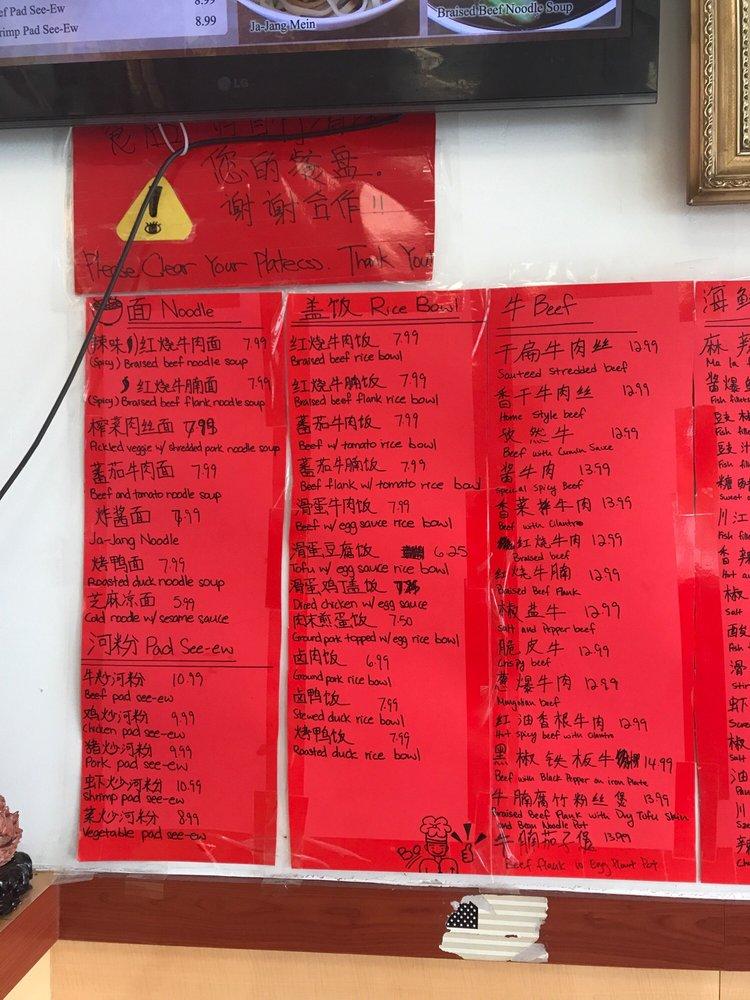 ef Pad See-Ew
8.99
hrimp Pad See-Ew
8.99
Ja-Jang Mein
Braised Beef Noodle Soup
LG
您的餐盘.
谢谢合作!!
Please Clear Your Platecss. Thank You!
面 Noodle
辣味 红烧牛肉面 7.99
(Spicy) Braised beef noodle soup
红烧牛腩面 7.99
(Spicy) Braised beef flank noodle soup
榨菜肉丝面
Pickled veggie w/ shredded pork noodle soup
蕃茄牛肉面 7.99
Beef and tomato noodle soup
炸酱面
Ja-Jang Noodle
烤鸭面 7.99
Roasted duck noodle soup
芝麻凉面 5.99
Cold noodle w/ sesame sauce
河粉 Pad See-ew
牛炒河粉 10.99
Beef pad see-ew
鸡炒河粉 9.99
Chicken pad see-ew
猪炒河粉 9.99
Pork pad see-ew
虾炒河粉 10.99
Shrimp pad see-ew
菜炒河粉 8.99
Vegetable pad see-ew
盖饭 Rice Bowl
红烧牛肉饭 7.99
Braised beef rice bowl
红烧牛腩饭 7.99
Braised beef flank rice bowl
蕃茄牛肉饭 7.99
Beef w/ tomato rice bowl
蕃茄牛腩饭 7.99
Beef flank w/ tomato rice bowl
滑蛋牛肉饭 7.99
Beef w/ egg sauce rice bowl
滑蛋豆腐饭 6.25
Tofu w/ egg sauce rice bowl
滑蛋鸡丁盖饭
Diced chicken w/ egg sauce
肉末煎蛋饭 7.50
Ground pork topped w/ egg rice bowl
卤肉饭 6.99
Ground pork rice bowl
卤鸭饭 7.99
Stewed duck rice bowl
烤鸭饭 7.99
Roasted duck rice bowl
牛 Beef
干扁牛肉丝 12.99
Sauteed Stredded beef
香干牛肉丝 12.99
Home Style beef
孜然牛 12.99
Beef with Cumin Sauce
酱牛肉 13.99
Special Spicy Beef
香菜牛肉 13.99
Beef with Cilantro
红烧牛肉 12.99
Braised beef
红烧牛腩 12.99
Braised Beef Flank
椒盐牛 12.99
Salt and Pepper beef
脆皮牛 12.99
Crispy beef
葱爆牛肉 12.99
Mongolian beef
红油香根牛肉 12.99
Hot spicy beef with cilantro
黑椒铁板牛 14.99
Beef with Black Pepper on iron Plate
牛腩腐竹粉丝煲 13.99
Braised Beef Flank with Dry Tofu Skin
and Bean Noodle Pot
牛腩茄子煲 13.99
Beef flank w Egg Plant Pot
海鲜
麻辣
Ma la f
酱爆
Fish fillets
豉椒
Fish fill
豉汁
Fish fille
糖醋
Sweet
川江
Fish fille
香辣
Hot a
椒
Salt
酸
Fish
滑
虾
椒
Salt
油
川
辣